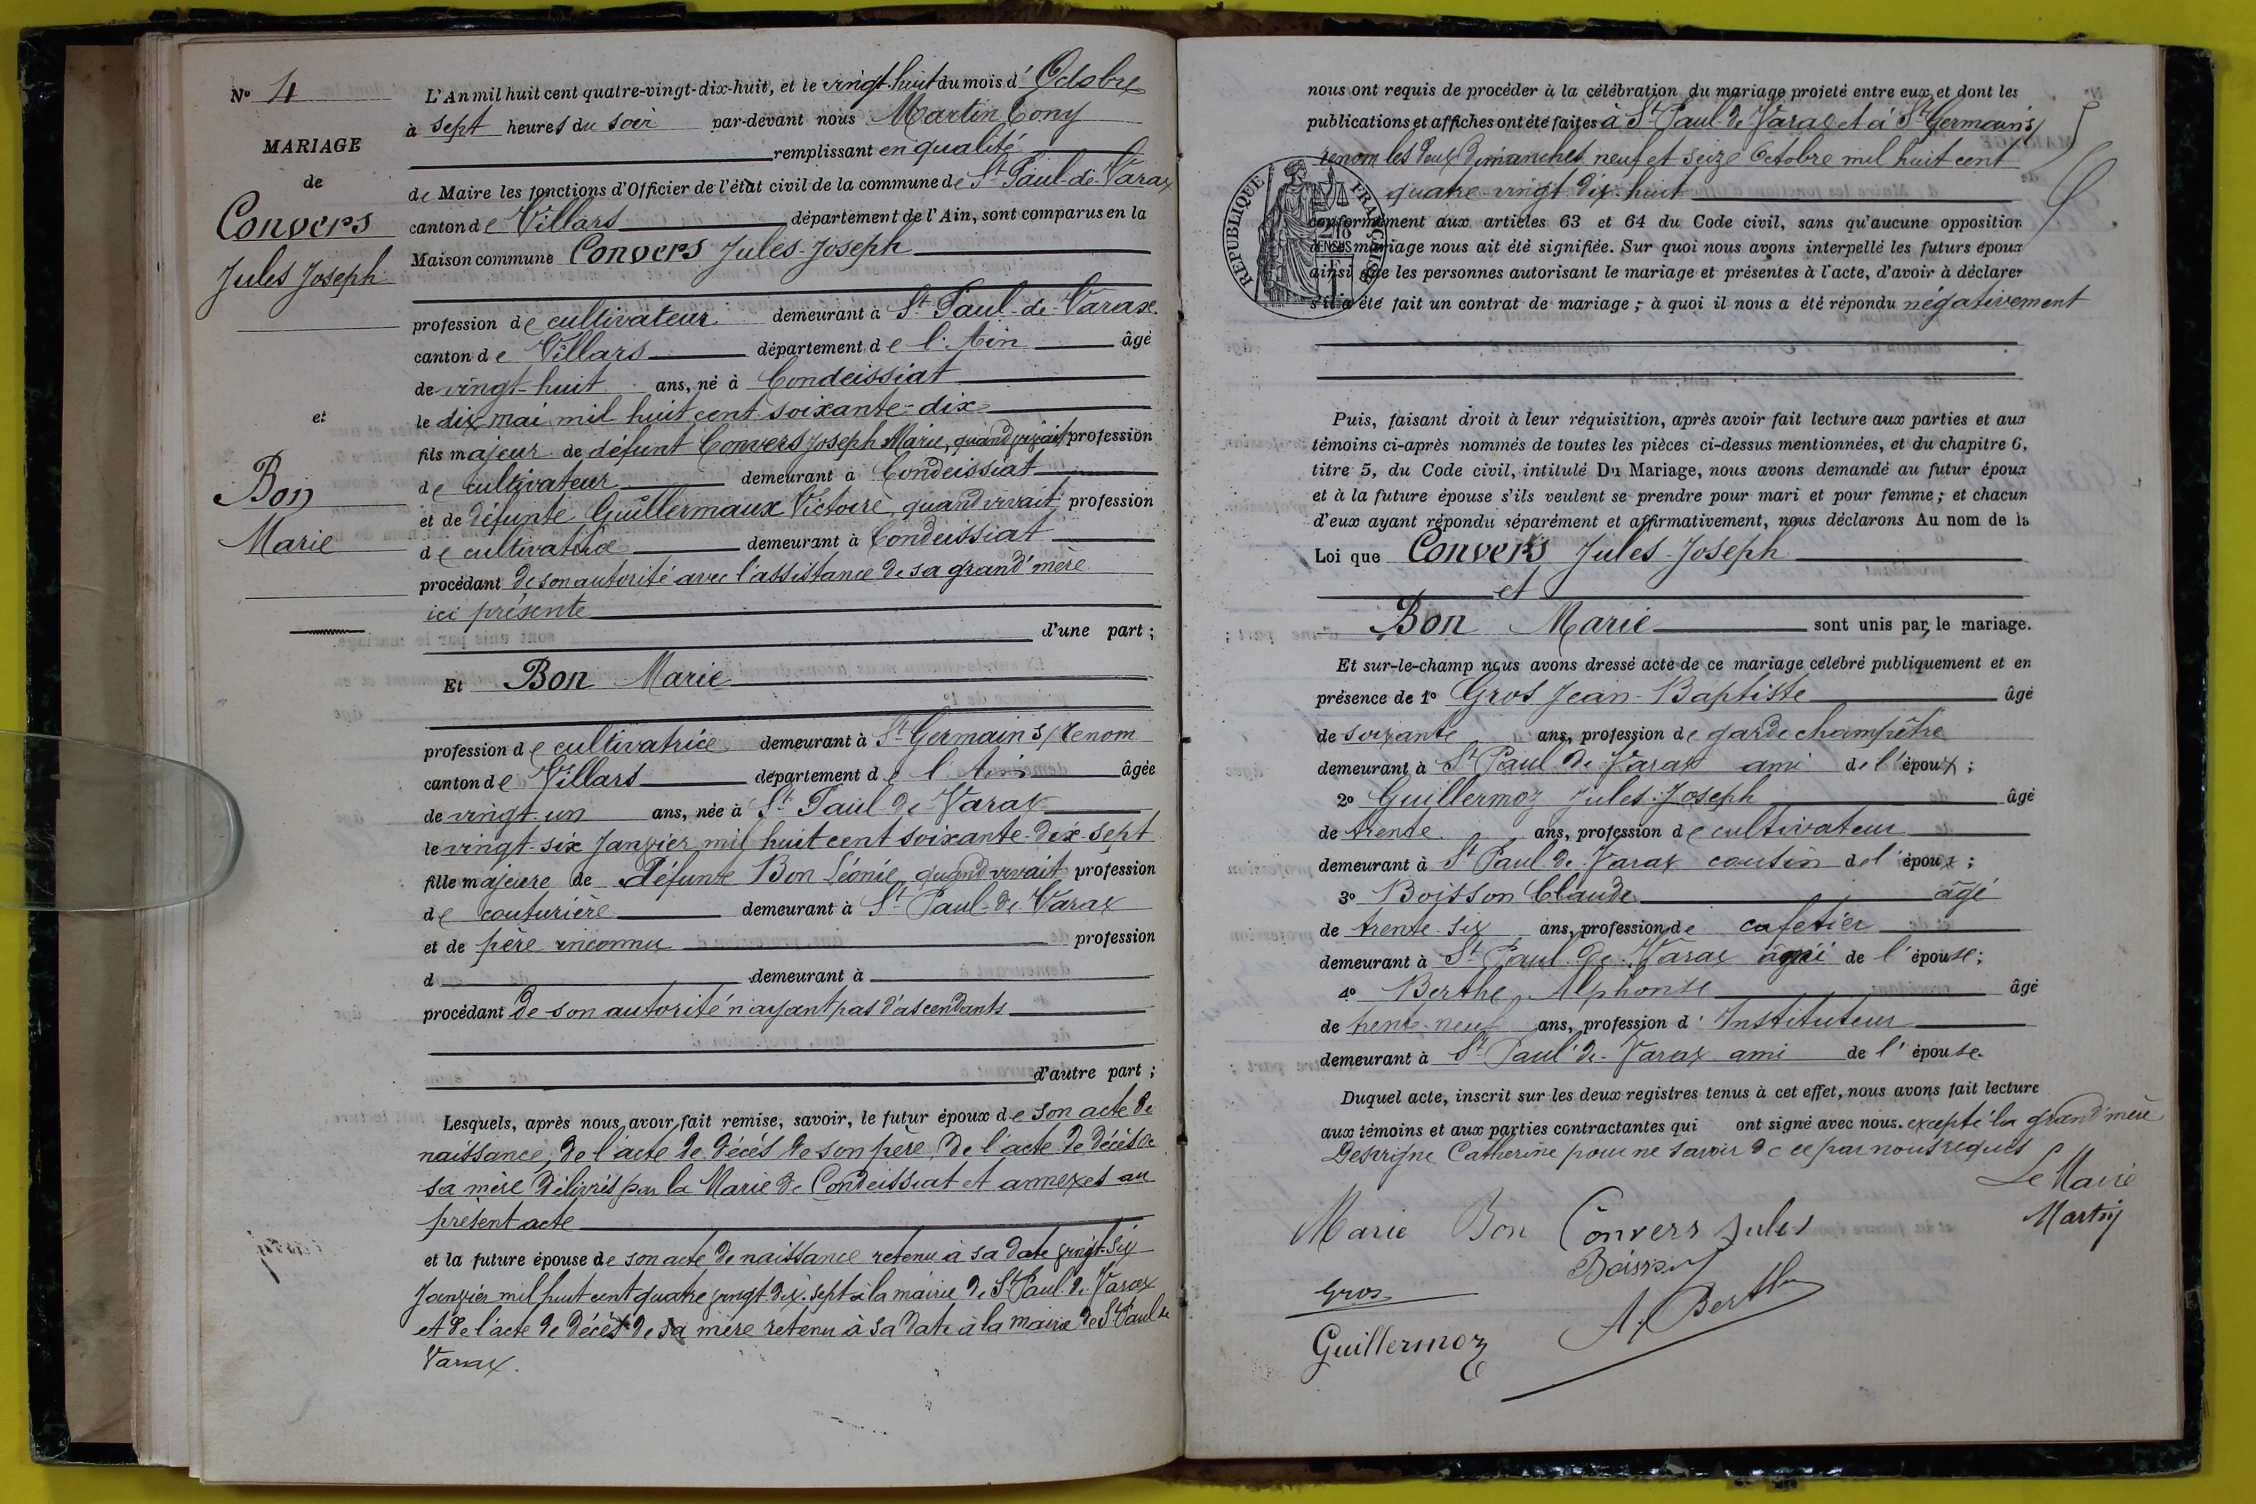 N° 4
MARIAGE
de
Convers
Jules Joseph
et
Bon
Marie
L'An mil huit cent quatre-vingt-dix-huit, et le vingt-huit du mois d'Octobre
à sept heures du soir par-devant nous Martin Tony
remplissant en qualité
de Maire les fonctions d'Officier de l'état civil de la commune de St Paul-de-Varax
canton de Villars département de l'Ain, sont comparus en la
Maison commune Convers Jules-Joseph
profession de cultivateur demeurant à St Paul-de-Varax.
canton de Villars département de l'Ain âgé
de vingt-huit ans, né à Condeissiat
le dix mai mil huit cent soixante-dix
fils majeur de défunt Convers Joseph Marie, quand vivait profession
de cultivateur demeurant à Condeissiat
et de défunte Guillermaux Victoire, quand vivait profession
de cultivatrice demeurant à Condeissiat
procédant de son autorité avec l'assistance de sa grand'mère
ici présente
d'une part ;
Et Bon Marie
profession de cultivatrice demeurant à St Germain s/renom
canton de Villars département de l'Ain âgée
de vingt-un ans, née à St Paul de Varax
le vingt-six Janvier mil huit cent soixante-dix-sept
fille majeure de défunte Bon Léonie, quand vivait profession
de couturière demeurant à St Paul-de Varax
et de père inconnu profession
d demeurant à
procédant de son autorité n'ayant pas d'ascendants
d'autre part ;
Lesquels, après nous avoir fait remise, savoir, le futur époux de son acte de
naissance, de l'acte de décés de son père, de l'acte de décès de
sa mère délivrés par la Mairie de Condeissiat et annexes au
présent acte
et la future épouse de son acte de naissance retenu à sa date vingt-six
Janvier mil huit cent quatre vingt-dix-sept à la mairie de St Paul-de Varax
et de l'acte de décès de sa mère retenu à sa date à la mairie de St Paul de
Varax.
nous ont requis de procéder à la célébration du mariage projeté entre eux et dont les
publications et affiches ont été faites à St Paul-de Varax et à St Germain s/
renom les deux dimanches neuf et seize Octobre mil huit cent
quatre-vingt-dix-huit
RÉPUBLIQUE FRANÇAISE
conformément aux articles 63 et 64 du Code civil, sans qu'aucune opposition
à ce mariage nous ait été signifiée. Sur quoi nous avons interpellé les futurs époux
ainsi que les personnes autorisant le mariage et présentes à l'acte, d'avoir à déclarer
s'il a été fait un contrat de mariage ; à quoi il nous a été répondu négativement
Puis, faisant droit à leur réquisition, après avoir fait lecture aux parties et aux
témoins ci-après nommés de toutes les pièces ci-dessus mentionnées, et du chapitre 6,
titre 5, du Code civil, intitulé Du Mariage, nous avons demandé au futur époux
et à la future épouse s'ils veulent se prendre pour mari et pour femme ; et chacun
d'eux ayant répondu séparément et affirmativement, nous déclarons Au nom de la
Loi que Convers Jules-Joseph
et
Bon Marie sont unis par le mariage.
Et sur-le-champ nous avons dressé acte de ce mariage célébré publiquement et en
présence de 1° Gros Jean-Baptiste âgé
de soixante ans, profession de garde champêtre
demeurant à St Paul-de-Varax ami de l'époux ;
2° Guillermoz Jules-Joseph âgé
de trente ans, profession de cultivateur
demeurant à St Paul-de-Varax cousin de l'époux ;
3° Boisson Claude âgé
de trente-six ans, profession de cafetier
demeurant à St Paul-de-Varax ami de l'épouse ;
4° Berthe Alphonse âgé
de trente-neuf ans, profession d'Instituteur
demeurant à St Paul-de-Varax ami de l'épouse.
Duquel acte, inscrit sur les deux registres tenus à cet effet, nous avons fait lecture
aux témoins et aux parties contractantes qui ont signé avec nous. excepté la grand'mère
Catherine pour ne savoir de ce par nous requis
Le Maire
Martin
Marie Bon Convers Jules
Boisson
Gros
A. Berthe
Guillermoz